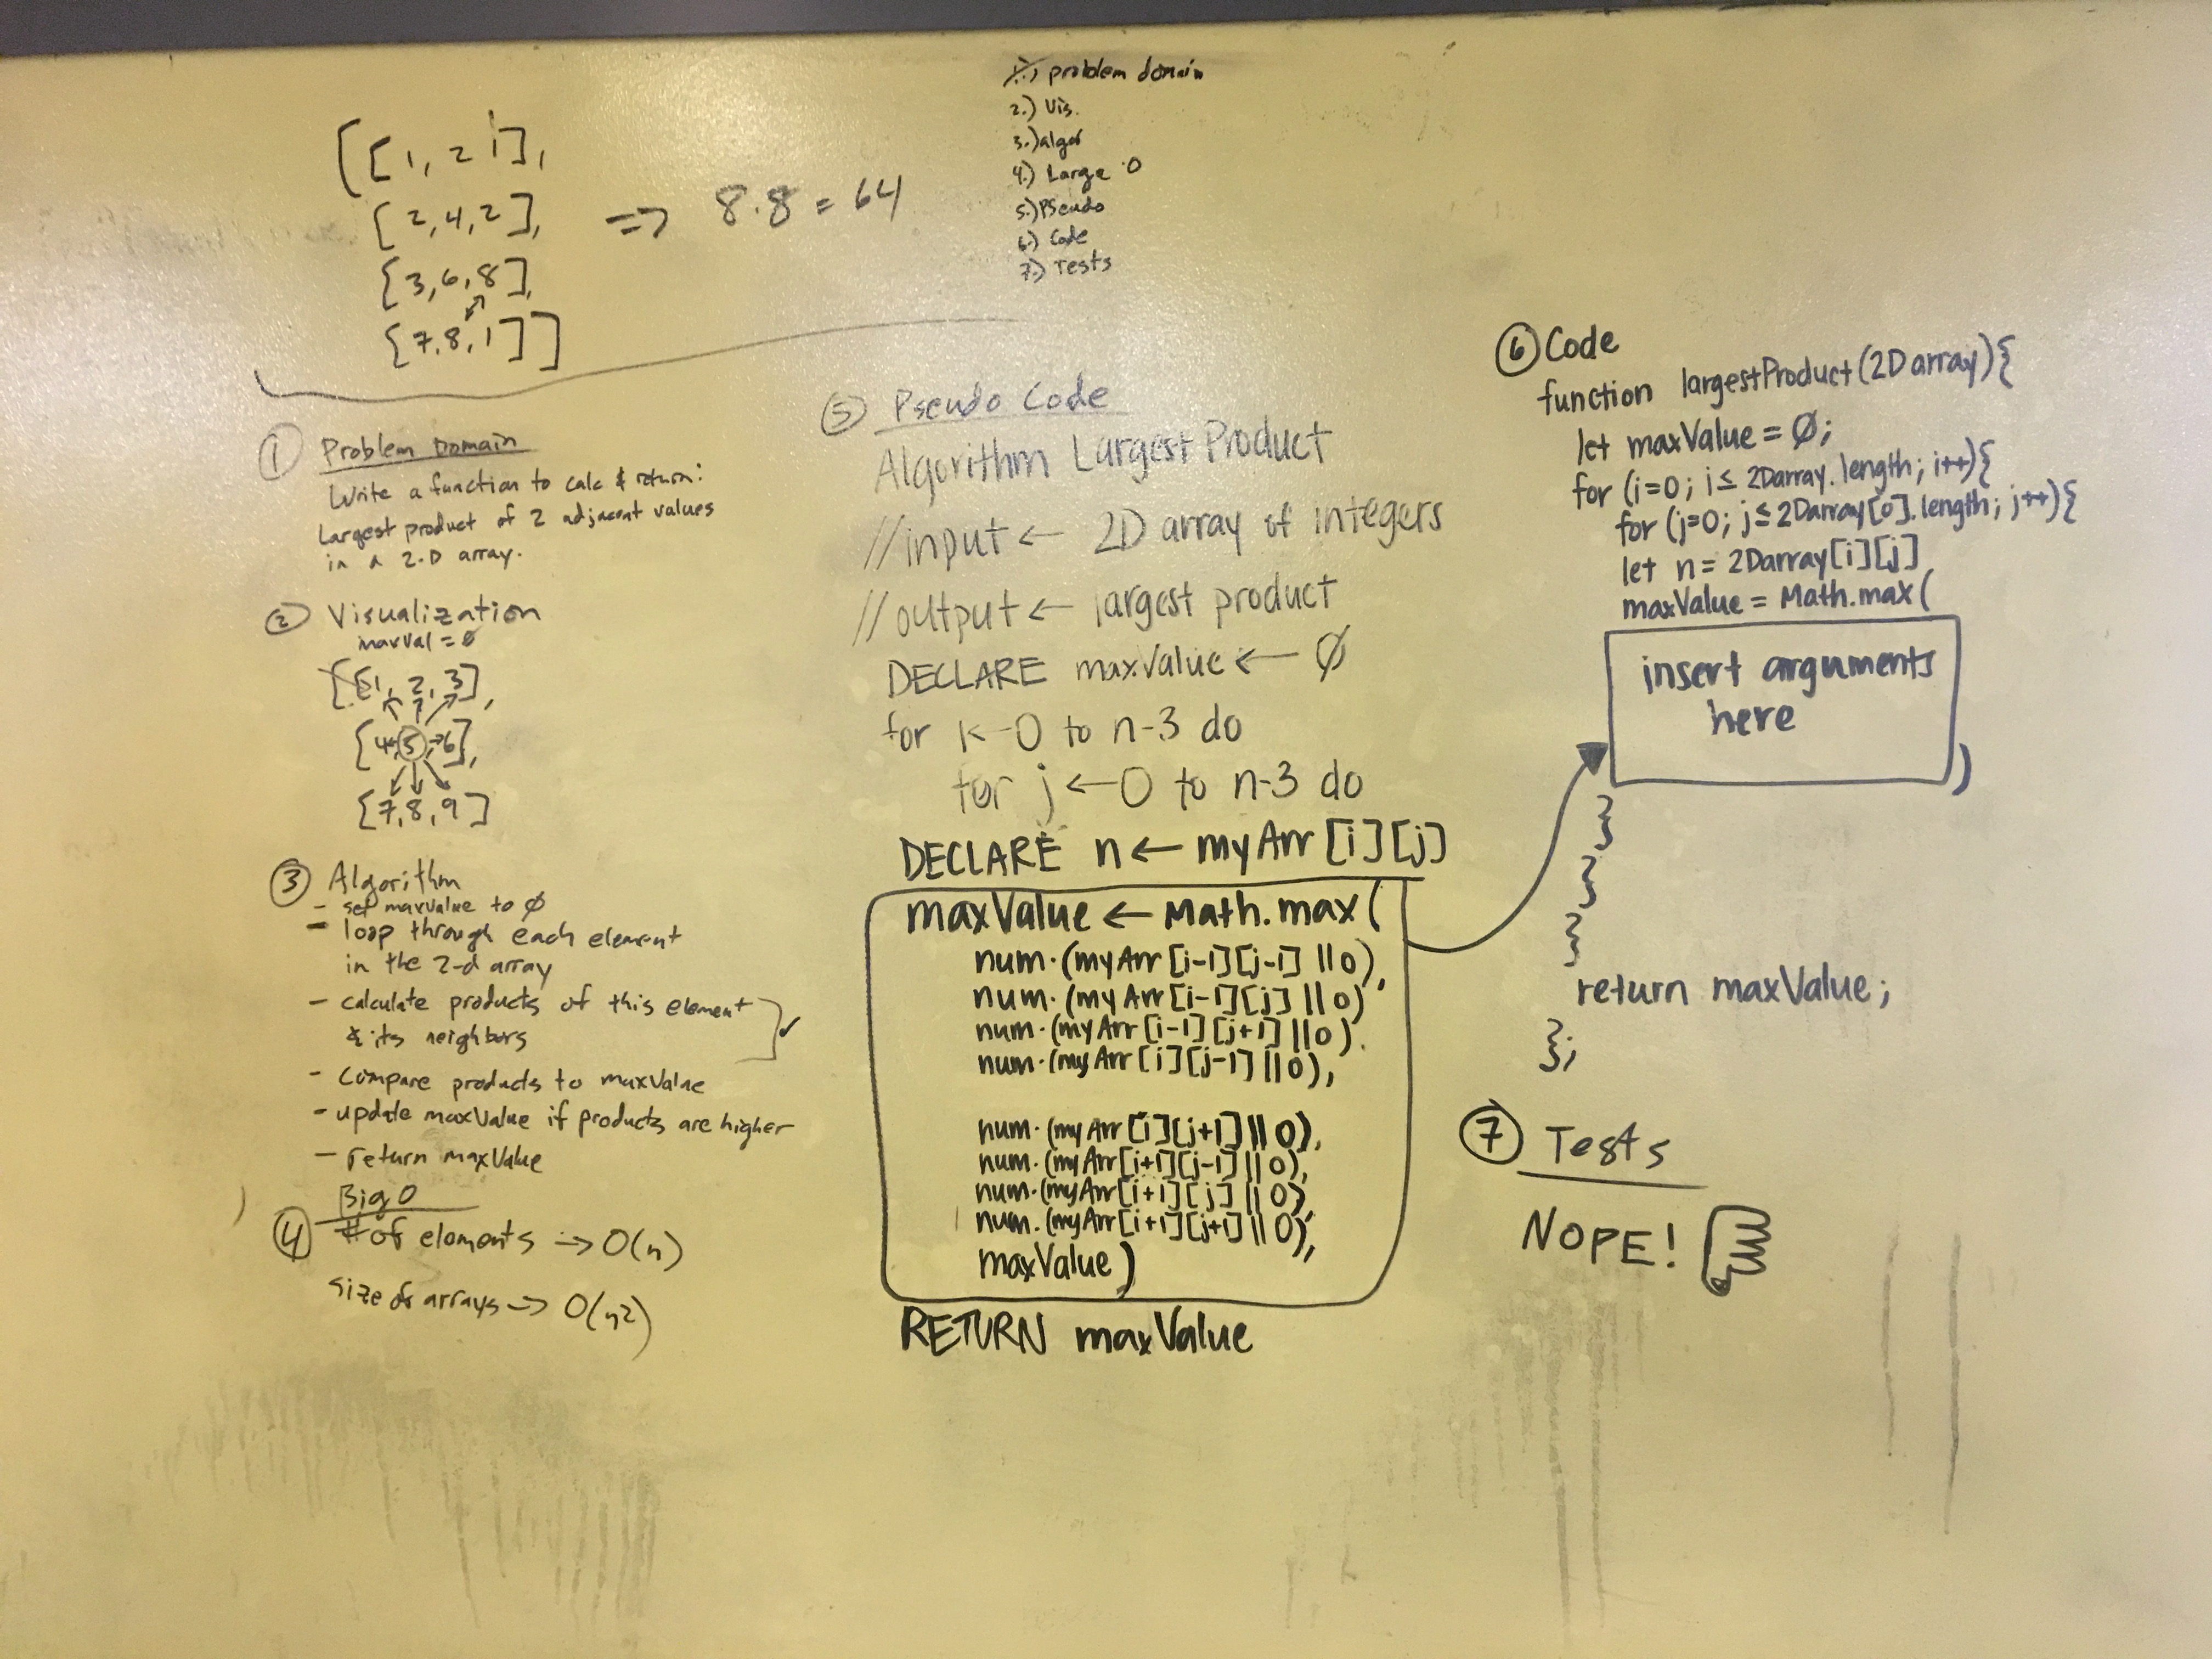 [[1, 2 1],
[2,4,2],
[3,6,8],
[7,8,1]]
=> 8·8 = 64
1.) problem domain
2.) Vis.
3.) algor
4.) Large O
5.) Pseudo
6.) Code
7.) Tests
① Problem Domain
Write a function to calc & return:
Largest product of 2 adjacent values
in a 2-D array.
② Visualization
maxVal = Ø
[[1, 2, 3],
[4, 5, 6],
[7,8,9]
③ Algorithm
- set maxValue to Ø
- loop through each element
in the 2-d array
- calculate products of this element
& its neighbors
- compare products to maxValue
- update maxValue if products are higher
- return maxValue
④ Big O
# of elements → O(n)
size of arrays → O(n2)
⑤ Pseudo Code
Algorithm Largest Product
//input ← 2D array of integers
//output ← largest product
DECLARE maxValue ← Ø
for i← 0 to n-3 do
for j ← 0 to n-3 do
DECLARE n ← myArr[i][j]
maxValue ← Math.max(
num·(myArr[i-1][j-1] || 0),
num·(myArr[i-1][j] || 0),
num·(myArr[i-1][j+1] || 0).
num·(myArr[i][j-1] || 0),
num·(myArr[i][j+1] || 0),
num·(myArr[i+1][j-1] || 0),
num·(myArr[i+1][j] || 0),
num·(myArr[i+1][j+1] || 0),
maxValue)
RETURN maxValue
⑥ Code
function largestProduct(2Darray){
let maxValue = Ø;
for (i=0; i≤ 2Darray.length; i++){
for (j=0; j≤2Darray[0].length; j++){
let n = 2Darray[i][j]
maxValue = Math.max(
insert arguments
here
)
}
}
}
return maxValue;
};
⑦ Tests
NOPE!